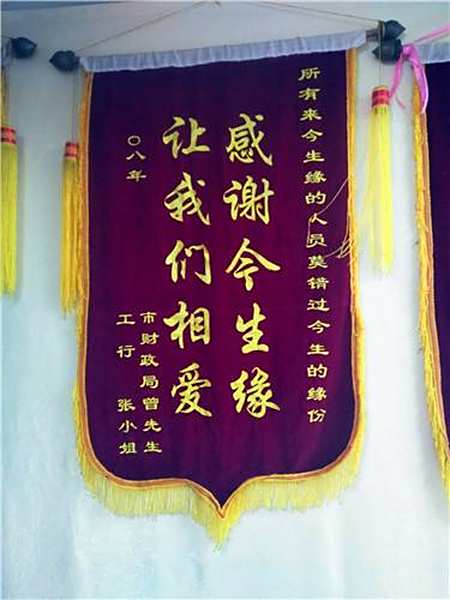 所有来今生缘的人员莫错过今生的缘份
感谢今生缘
让我们相爱
市财政局曾先生
工行 张小姐
〇八年